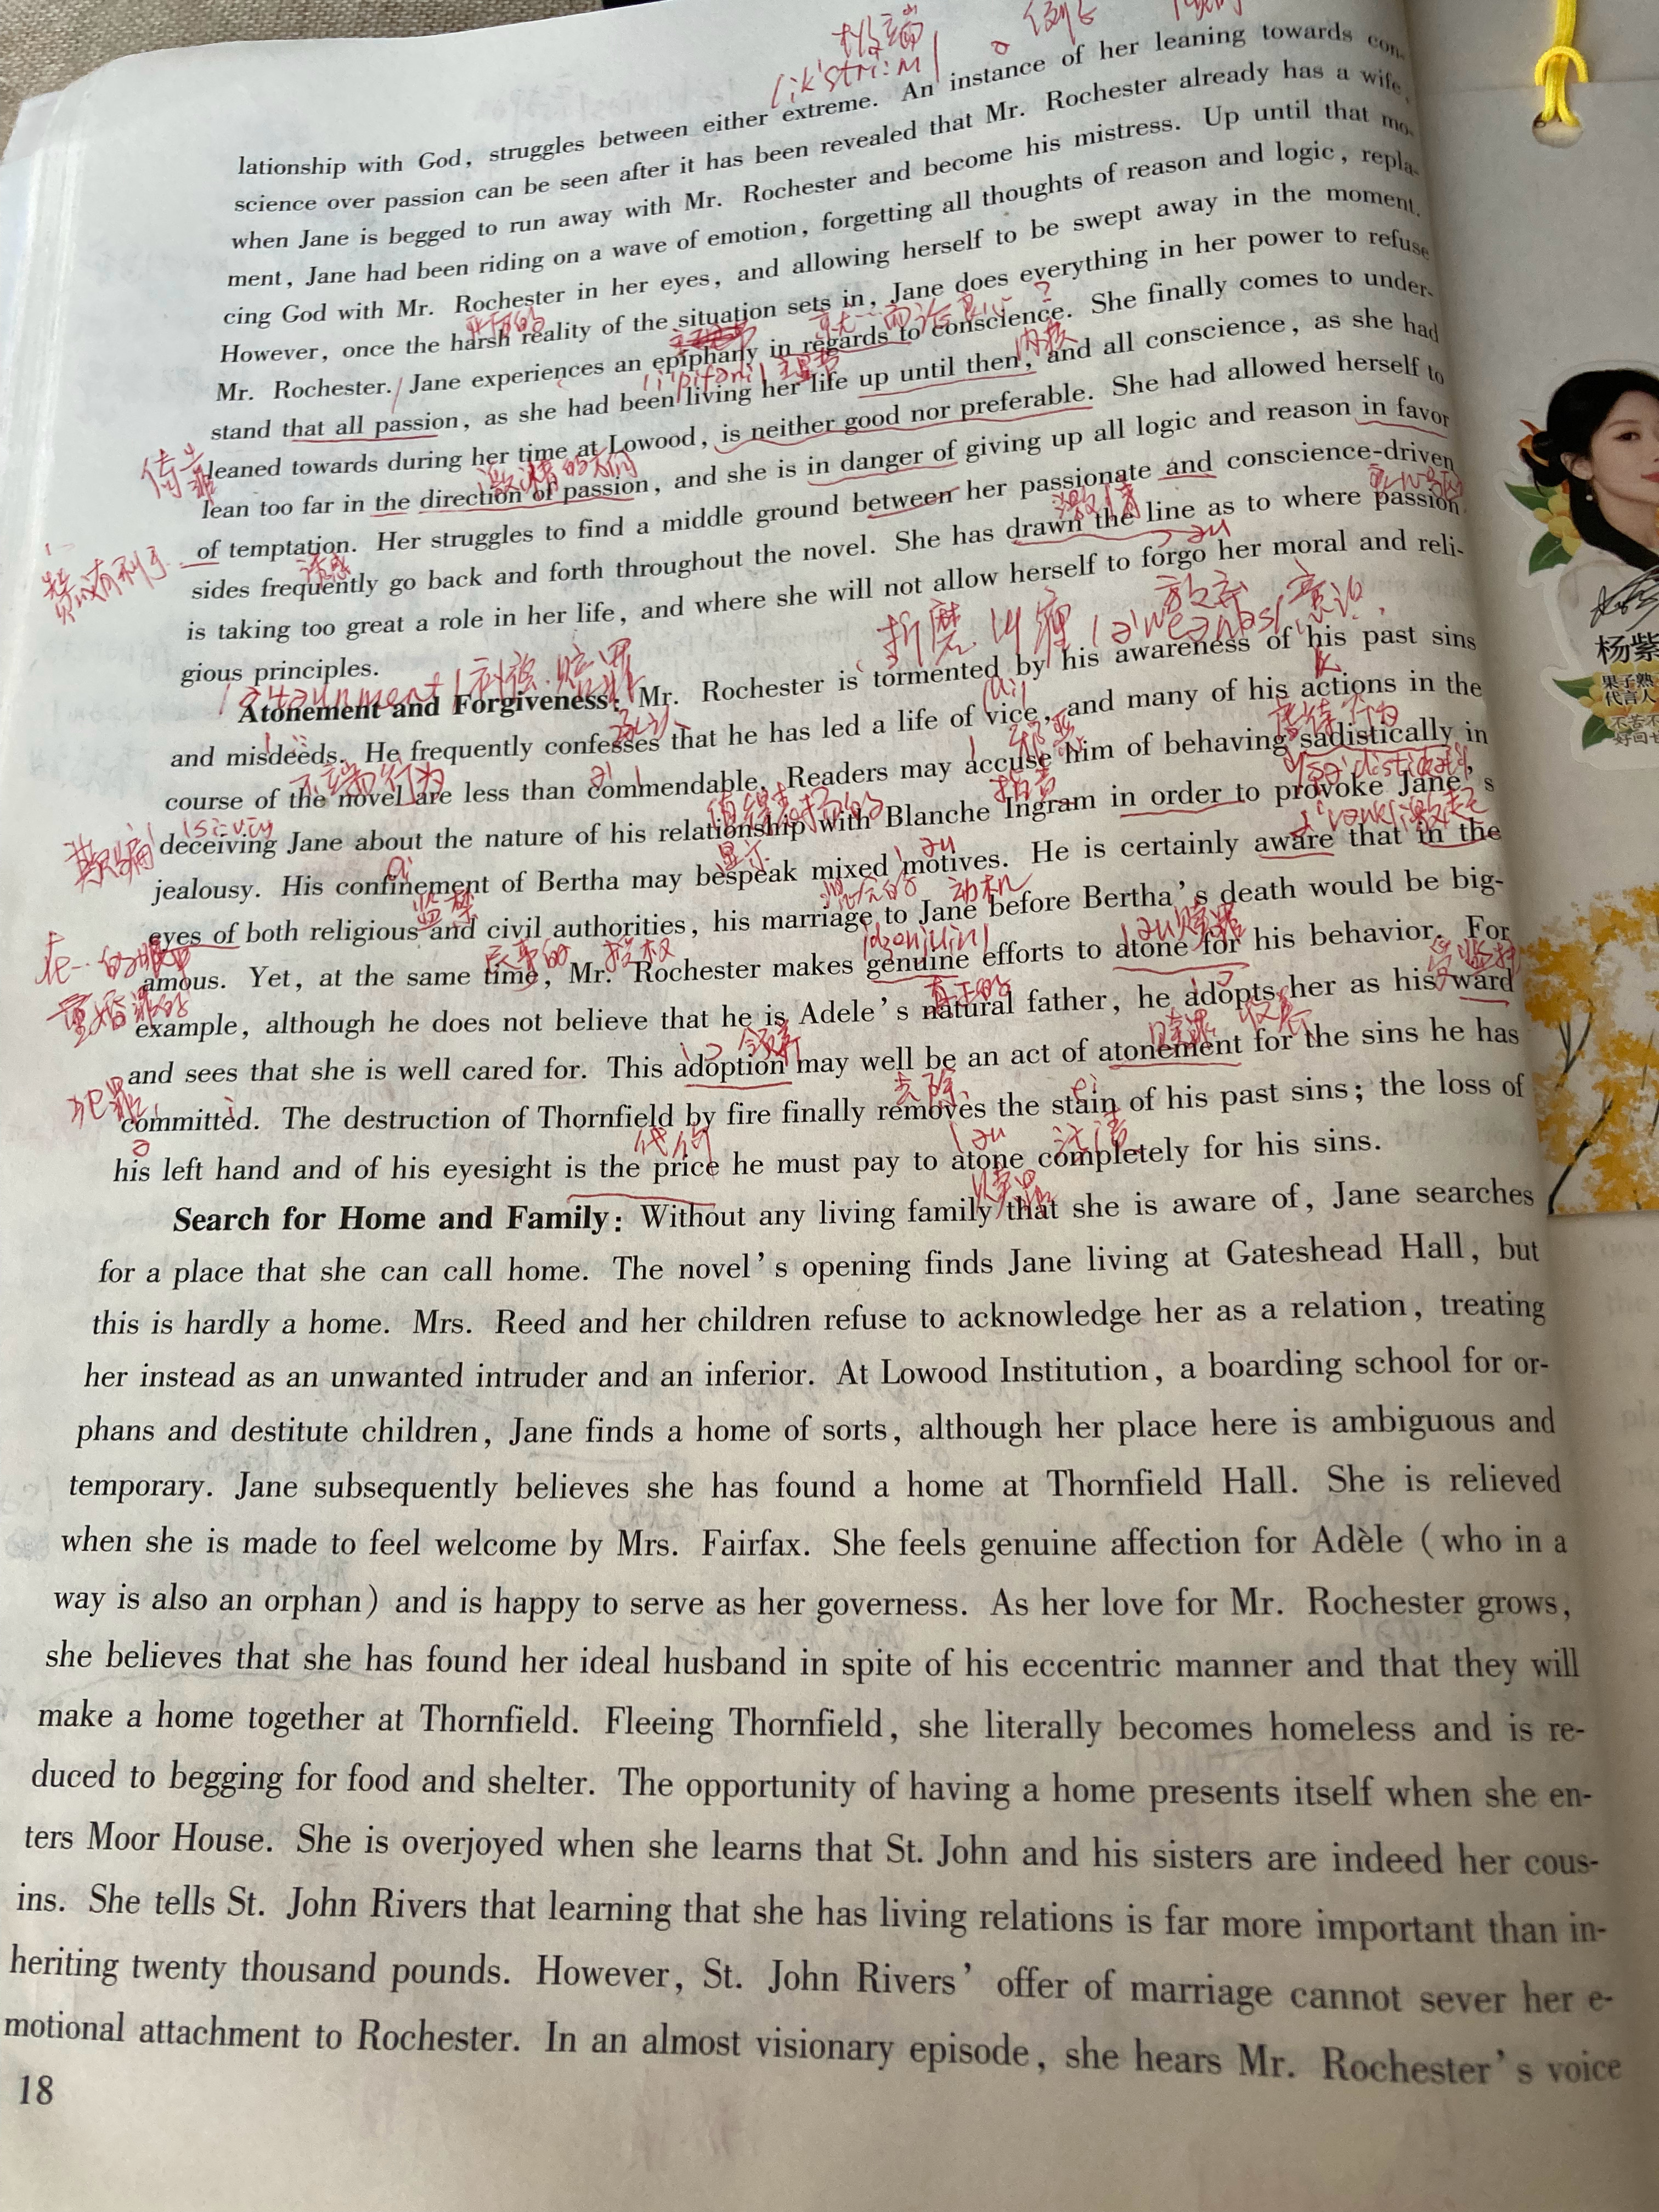 极端
lationship with God, struggles between either extreme. An instance of her leaning towards con-
science over passion can be seen after it has been revealed that Mr. Rochester already has a wife,
when Jane is begged to run away with Mr. Rochester and become his mistress. Up until that mo-
ment, Jane had been riding on a wave of emotion, forgetting all thoughts of reason and logic, repla-
cing God with Mr. Rochester in her eyes, and allowing herself to be swept away in the moment.
However, once the harsh reality of the situation sets in, Jane does everything in her power to refuse
Mr. Rochester. Jane experiences an epiphany in regards to conscience. She finally comes to under-
stand that all passion, as she had been living her life up until then, and all conscience, as she had
leaned towards during her time at Lowood, is neither good nor preferable. She had allowed herself to
lean too far in the direction of passion, and she is in danger of giving up all logic and reason in favor
of temptation. Her struggles to find a middle ground between her passionate and conscience-driven
诱惑
激情
sides frequently go back and forth throughout the novel. She has drawn the line as to where passion
is taking too great a role in her life, and where she will not allow herself to forgo her moral and reli-
放弃
gious principles.
折磨
Atonement and Forgiveness: Mr. Rochester is tormented by his awareness of his past sins
and misdeeds. He frequently confesses that he has led a life of vice, and many of his actions in the
不端行为
course of the novel are less than commendable. Readers may accuse him of behaving sadistically in
欺骗
指责
deceiving Jane about the nature of his relationship with Blanche Ingram in order to provoke Jane's
激起
jealousy. His confinement of Bertha may bespeak mixed motives. He is certainly aware that in the
监禁
动机
eyes of both religious and civil authorities, his marriage to Jane before Bertha's death would be big-
重婚罪的
amous. Yet, at the same time, Mr. Rochester makes genuine efforts to atone for his behavior. For
真正的
example, although he does not believe that he is Adele's natural father, he adopts her as his ward
领养
赎罪
收养
and sees that she is well cared for. This adoption may well be an act of atonement for the sins he has
犯罪
去除
committed. The destruction of Thornfield by fire finally removes the stain of his past sins; the loss of
代价
his left hand and of his eyesight is the price he must pay to atone completely for his sins.
赎罪
Search for Home and Family: Without any living family that she is aware of, Jane searches
for a place that she can call home. The novel's opening finds Jane living at Gateshead Hall, but
this is hardly a home. Mrs. Reed and her children refuse to acknowledge her as a relation, treating
her instead as an unwanted intruder and an inferior. At Lowood Institution, a boarding school for or-
phans and destitute children, Jane finds a home of sorts, although her place here is ambiguous and
temporary. Jane subsequently believes she has found a home at Thornfield Hall. She is relieved
when she is made to feel welcome by Mrs. Fairfax. She feels genuine affection for Adèle (who in a
way is also an orphan) and is happy to serve as her governess. As her love for Mr. Rochester grows,
she believes that she has found her ideal husband in spite of his eccentric manner and that they will
make a home together at Thornfield. Fleeing Thornfield, she literally becomes homeless and is re-
duced to begging for food and shelter. The opportunity of having a home presents itself when she en-
ters Moor House. She is overjoyed when she learns that St. John and his sisters are indeed her cous-
ins. She tells St. John Rivers that learning that she has living relations is far more important than in-
heriting twenty thousand pounds. However, St. John Rivers' offer of marriage cannot sever her e-
motional attachment to Rochester. In an almost visionary episode, she hears Mr. Rochester's voice
18
杨紫
果子熟
代言人